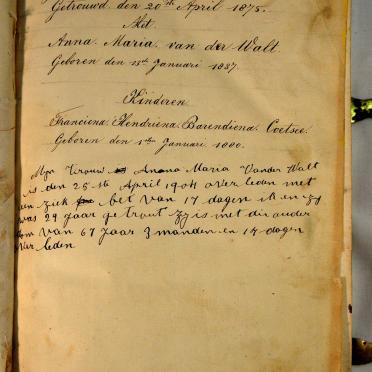 Getrouwd den 20th April 1875.
Met
Anna. Maria. van der Walt.
Geboren den 15st Januari 1837.
Kinderen
Franciena. Hendriena. Barendiena. Coetsee.
Geboren den 1ste Januari 1880.
Myn Vrouw Anana Maria Vander Walt
is den 25ste April 1904 over leden met
een ziek bet van 17 dagen ik en zy
was 29 jaar getrout zy is met die ouder
dom van 67 Jaar 3 manden en 14 dagen
over leden